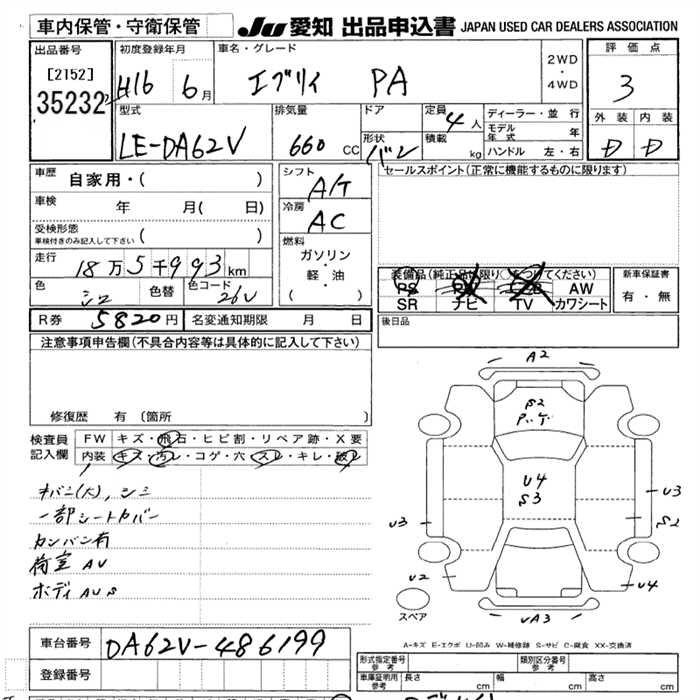 車内保管・守衛保管 JU 愛知 出品申込書 JAPAN USED CAR DEALERS ASSOCIATION
出品番号 初度登録年月 車名・グレード 2WD・4WD 評価点
[2152] H16 6月 エブリイ PA 3
35232
型式 排気量 ドア 定員 4人 ディーラー・並行 外装 内装
LE-DA62V 660 CC 形状 バン 積載 kg モデル年式 年 D D
ハンドル 左・右
車歴 自家用・( ) シフト A/T セールスポイント(正常に機能するものに限ります)
車検 年 月( 日) 冷房 AC
受検形態 車検付きのみ記入して下さい ( ) 燃料
ガソリン・軽・油
( )
走行 18万5千993km 装備品(純正品に限り○をつけてください) 新車保証書
色 シロ 色替 色コード 26V PS AW 有・無
SR ナビ TV カワシート
R券 5820円 名変通知期限 月 日 後日品
注意事項申告欄(不具合内容等は具体的に記入して下さい)
A2
S2
修復歴 有(箇所
検査員記入欄 FW キズ・飛石・ヒビ割・リペア跡・X要
内装 キズ・汚レ・コゲ・穴・スレ・キレ・破レ
U4
S3
U3
S2
U3
一部シートカバー
カンバン有
荷室 AU
ボディ AUS
U2
U4
UA3
スペア
A-キズ E-エクボ U-凹み W-補修跡 S-サビ C-腐食 XX-交換済
車台番号 DA62V-486199
登録番号
形式指定番号 参考 類別区分番号 参考
車庫証明用 参考 長さ cm 幅 cm 高さ cm